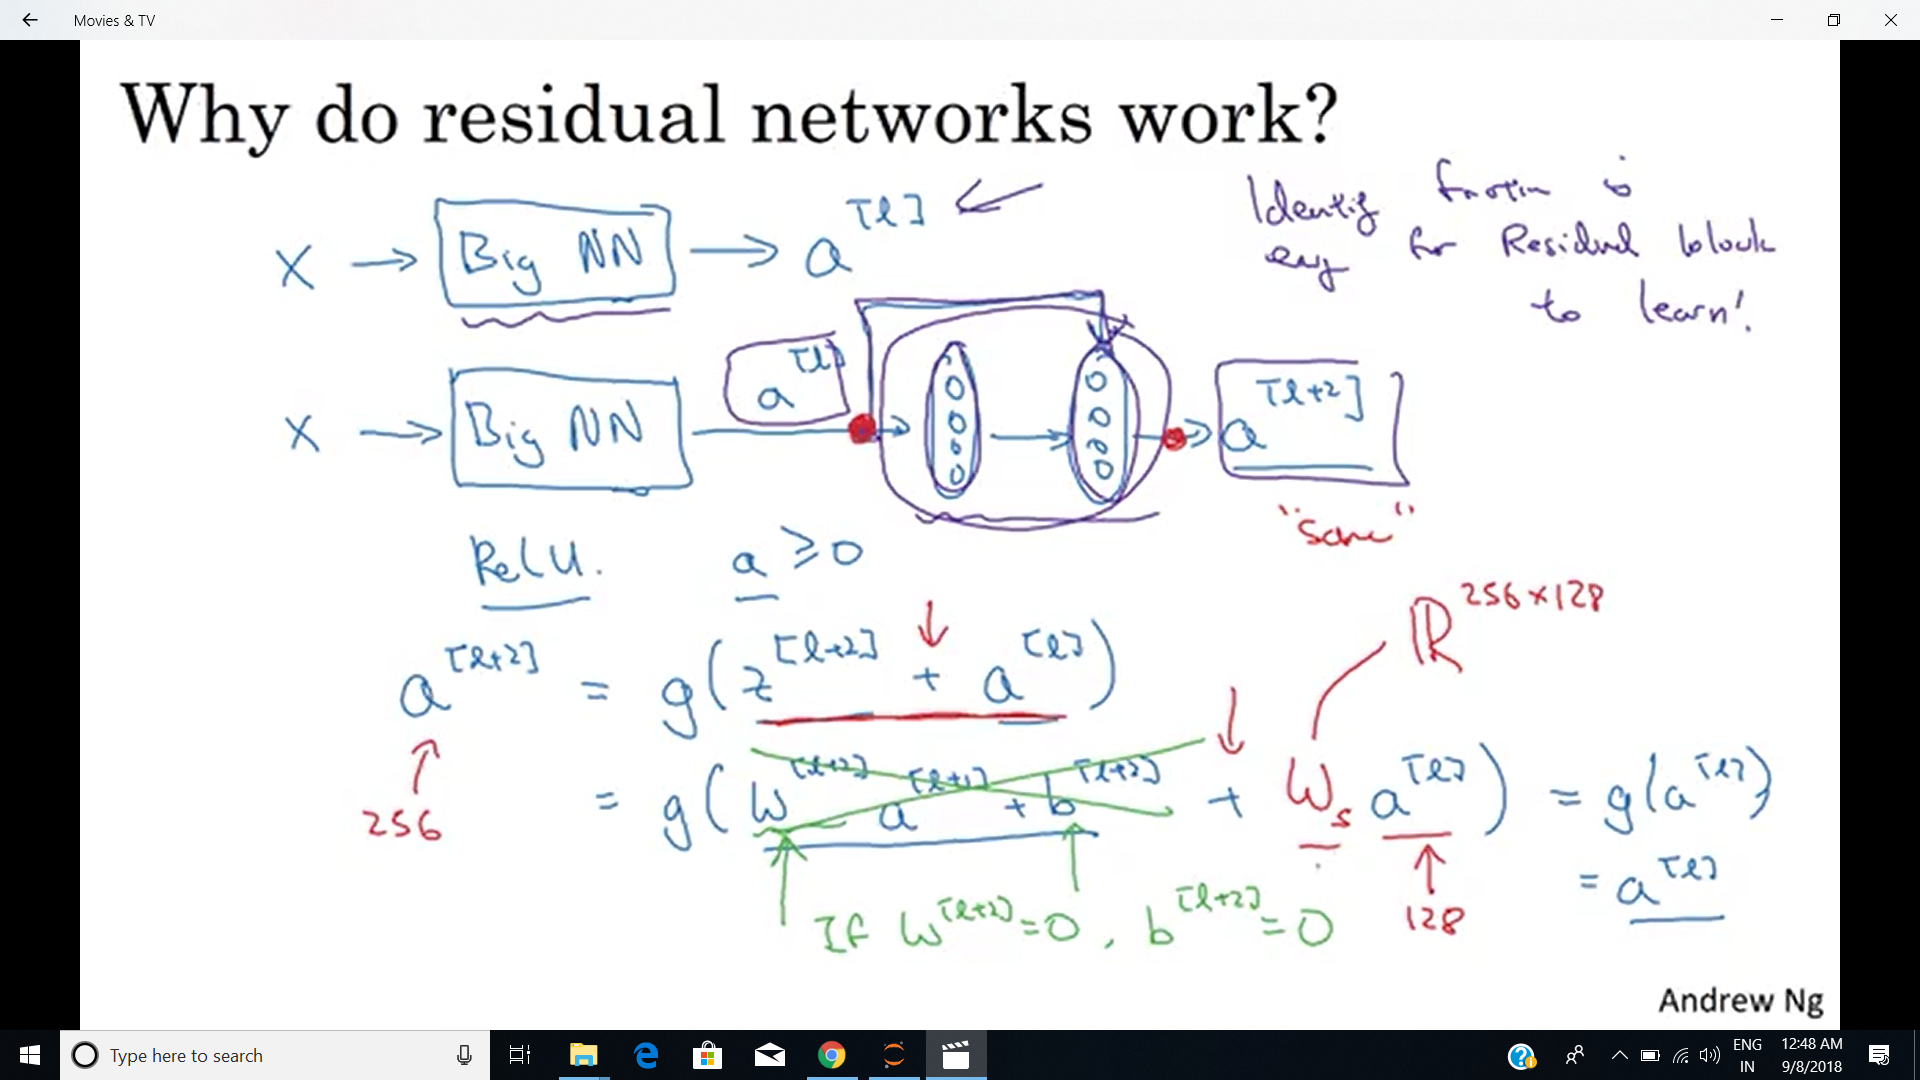 Movies & TV
Why do residual networks work?
X → Big NN → a^[l]
Identity function is
easy for Residual block
to learn!
X → Big NN a^[l] → → a^[l+2]
"same"
ReLU. a ≥ 0
ℝ^256×128
a^[l+2] = g(z^[l+2] + a^[l])
256
= g(W^[l+2] a^[l+1] + b^[l+2] + W_s a^[l]) = g(a^[l])
= a^[l]
128
If W^[l+2] = 0, b^[l+2] = 0
Andrew Ng
Type here to search
ENG
IN
12:48 AM
9/8/2018